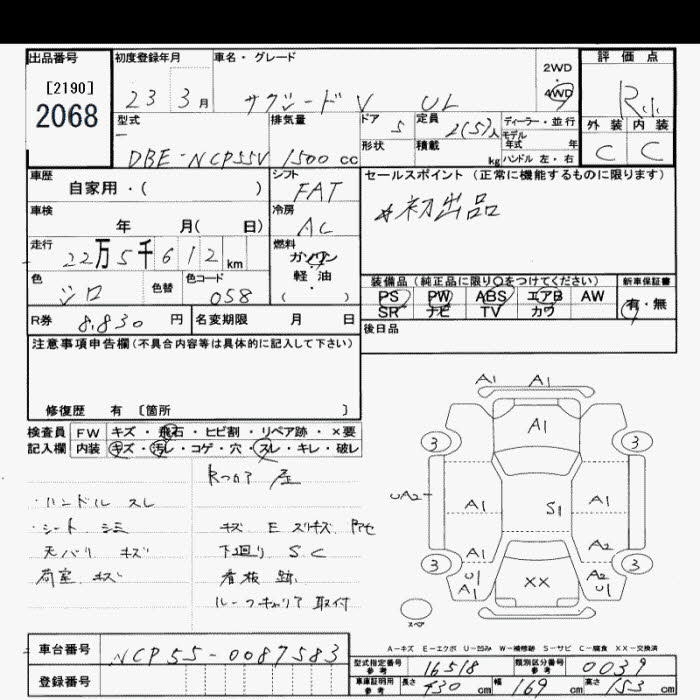 出品番号 初度登録年月 車名・グレード 2WD 評価点
[2190] 4WD
2068 23 3月 サクシードV UL R小
型式 排気量 ドア 定員 ディーラー・並行 外装 内装
5 2(5)人 モデル
年式 年
DBE-NCP55V 1500cc 形状 積載 kg ハンドル 左・右 C C
車歴 シフト セールスポイント (正常に機能するものに限ります)
自家用・( ) FAT
車検 冷房 初出品
年 月( 日) AC
走行 燃料
22万5千612km ガソリン
色 色替 色コード 軽・油 装備品 (純正品に限り○をつけてください) 新車保証書
シロ 058 ( ) PS PW ABS エアB AW 有・無
R券 8,830円 名変期限 月 日 SR ナビ TV カワ
後日品
注意事項申告欄(不具合内容等は具体的に記入して下さい)
修復歴 有 〔箇所 〕
検査員 FW キズ・飛石・ヒビ割・リペア跡・×要
記入欄 内装 キズ・汚レ・コゲ・穴・スレ・キレ・破レ
・ハンドル スレ
・シート シミ キズ E
天バリ キズ 下廻り S C
荷室 キズ 看板跡
ルーフキャリア取付
A1 A1
A1
3 3
UA2 A1 S1 A1
A1 A2
3 3
U1 A1 XX A2 U1
スペア
A-キズ E-エクボ U-凹み W-補修跡 S-サビ C-腐食 XX-交換済
車台番号 NCP55-0087583
型式指定番号 参考 16518 類別区分番号 参考 0039
登録番号
車庫証明用 参考 長さ 430cm 幅 169cm 高さ 153cm